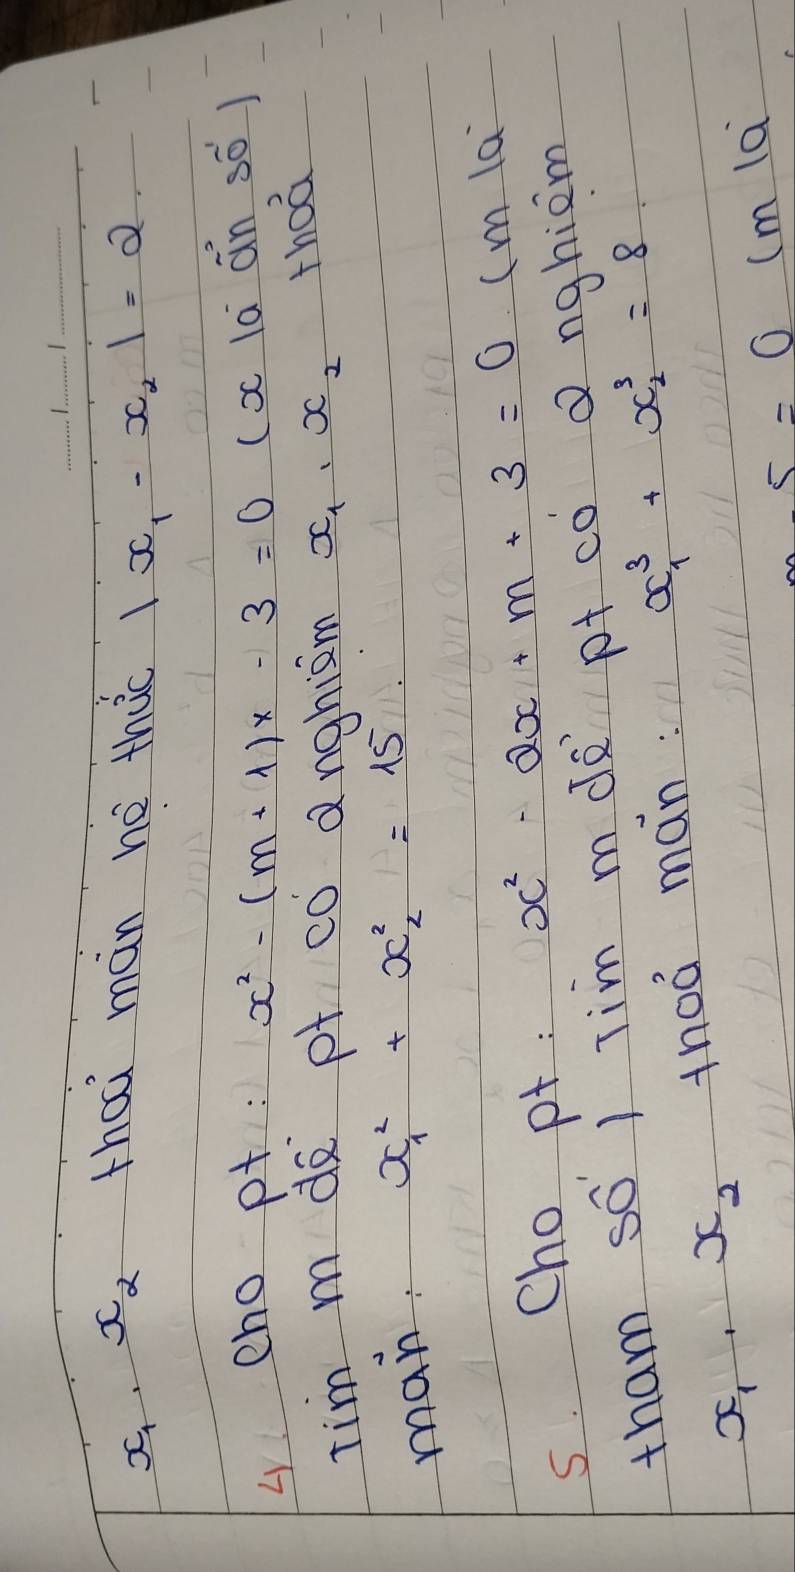 x₁, x₂ thoả mãn hệ thức |x₁ - x₂| = 2.
4 Cho pt: x² - (m + 1)x - 3 = 0 (x là ẩn số)
Tìm m để pt có 2 nghiệm x₁, x₂ thoả
mãn. x₁² + x₂² = 15.
5. Cho pt: x² - 2x + m + 3 = 0 (m là
tham số) Tìm m để pt có 2 nghiệm
x₁, x₂ thoả mãn: x₁³ + x₂³ = 8.
5 = 0 (m là